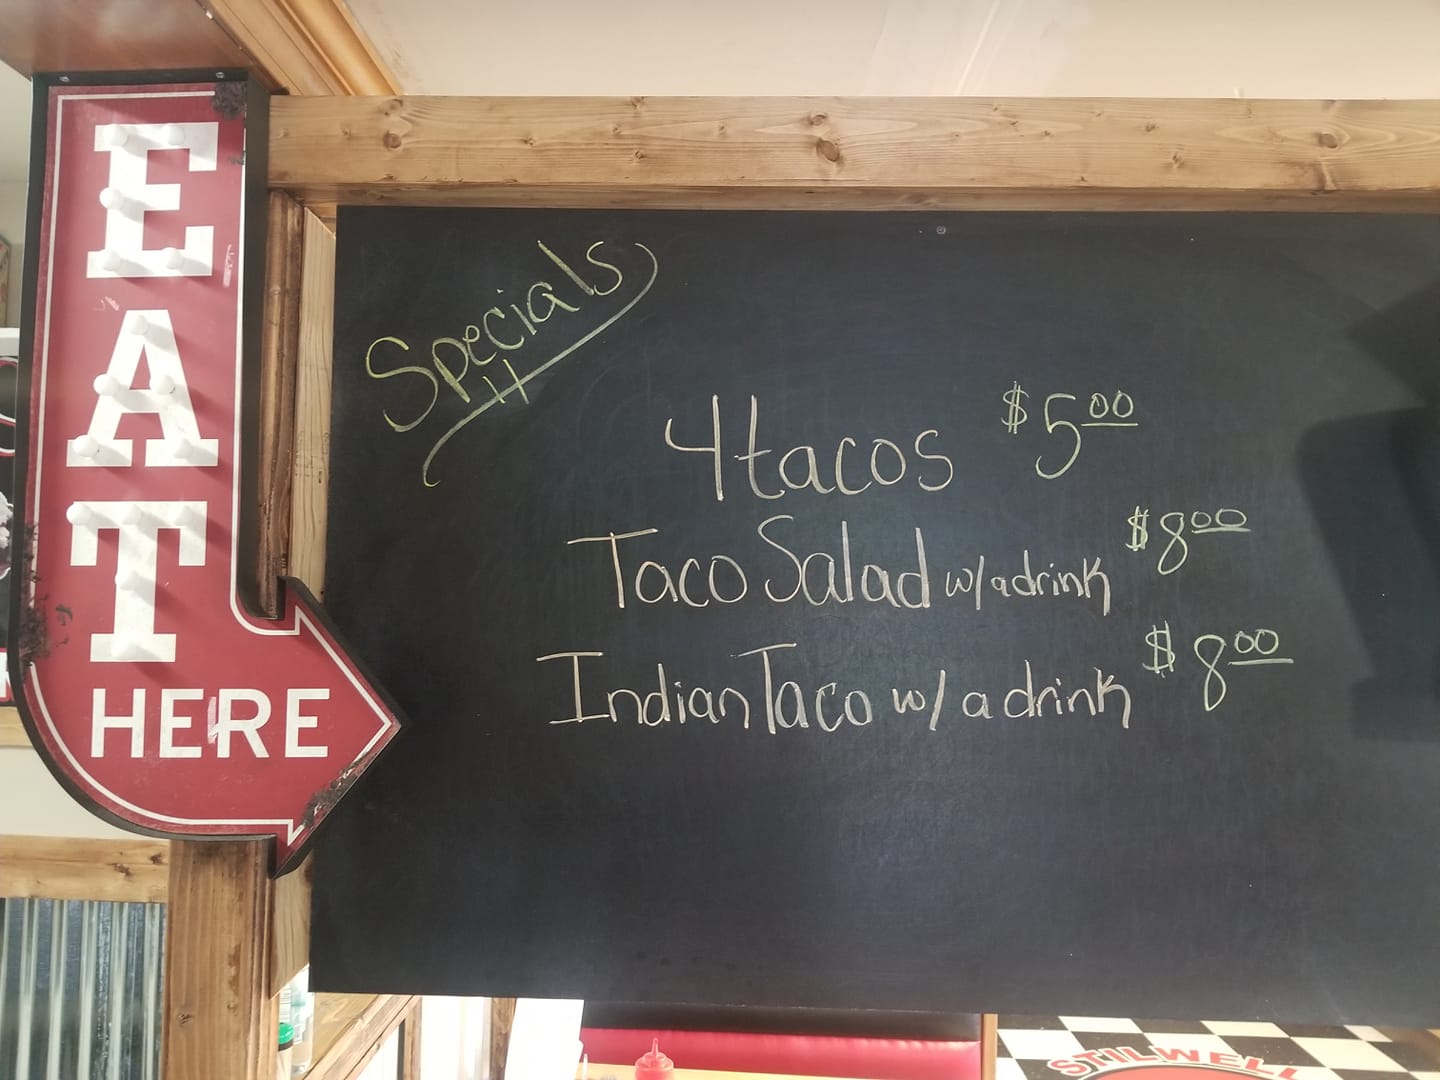 EAT
HERE
Specials
4 tacos $5.00
Taco Salad w/ a drink $8.00
Indian Taco w/ a drink $8.00
STILWELL